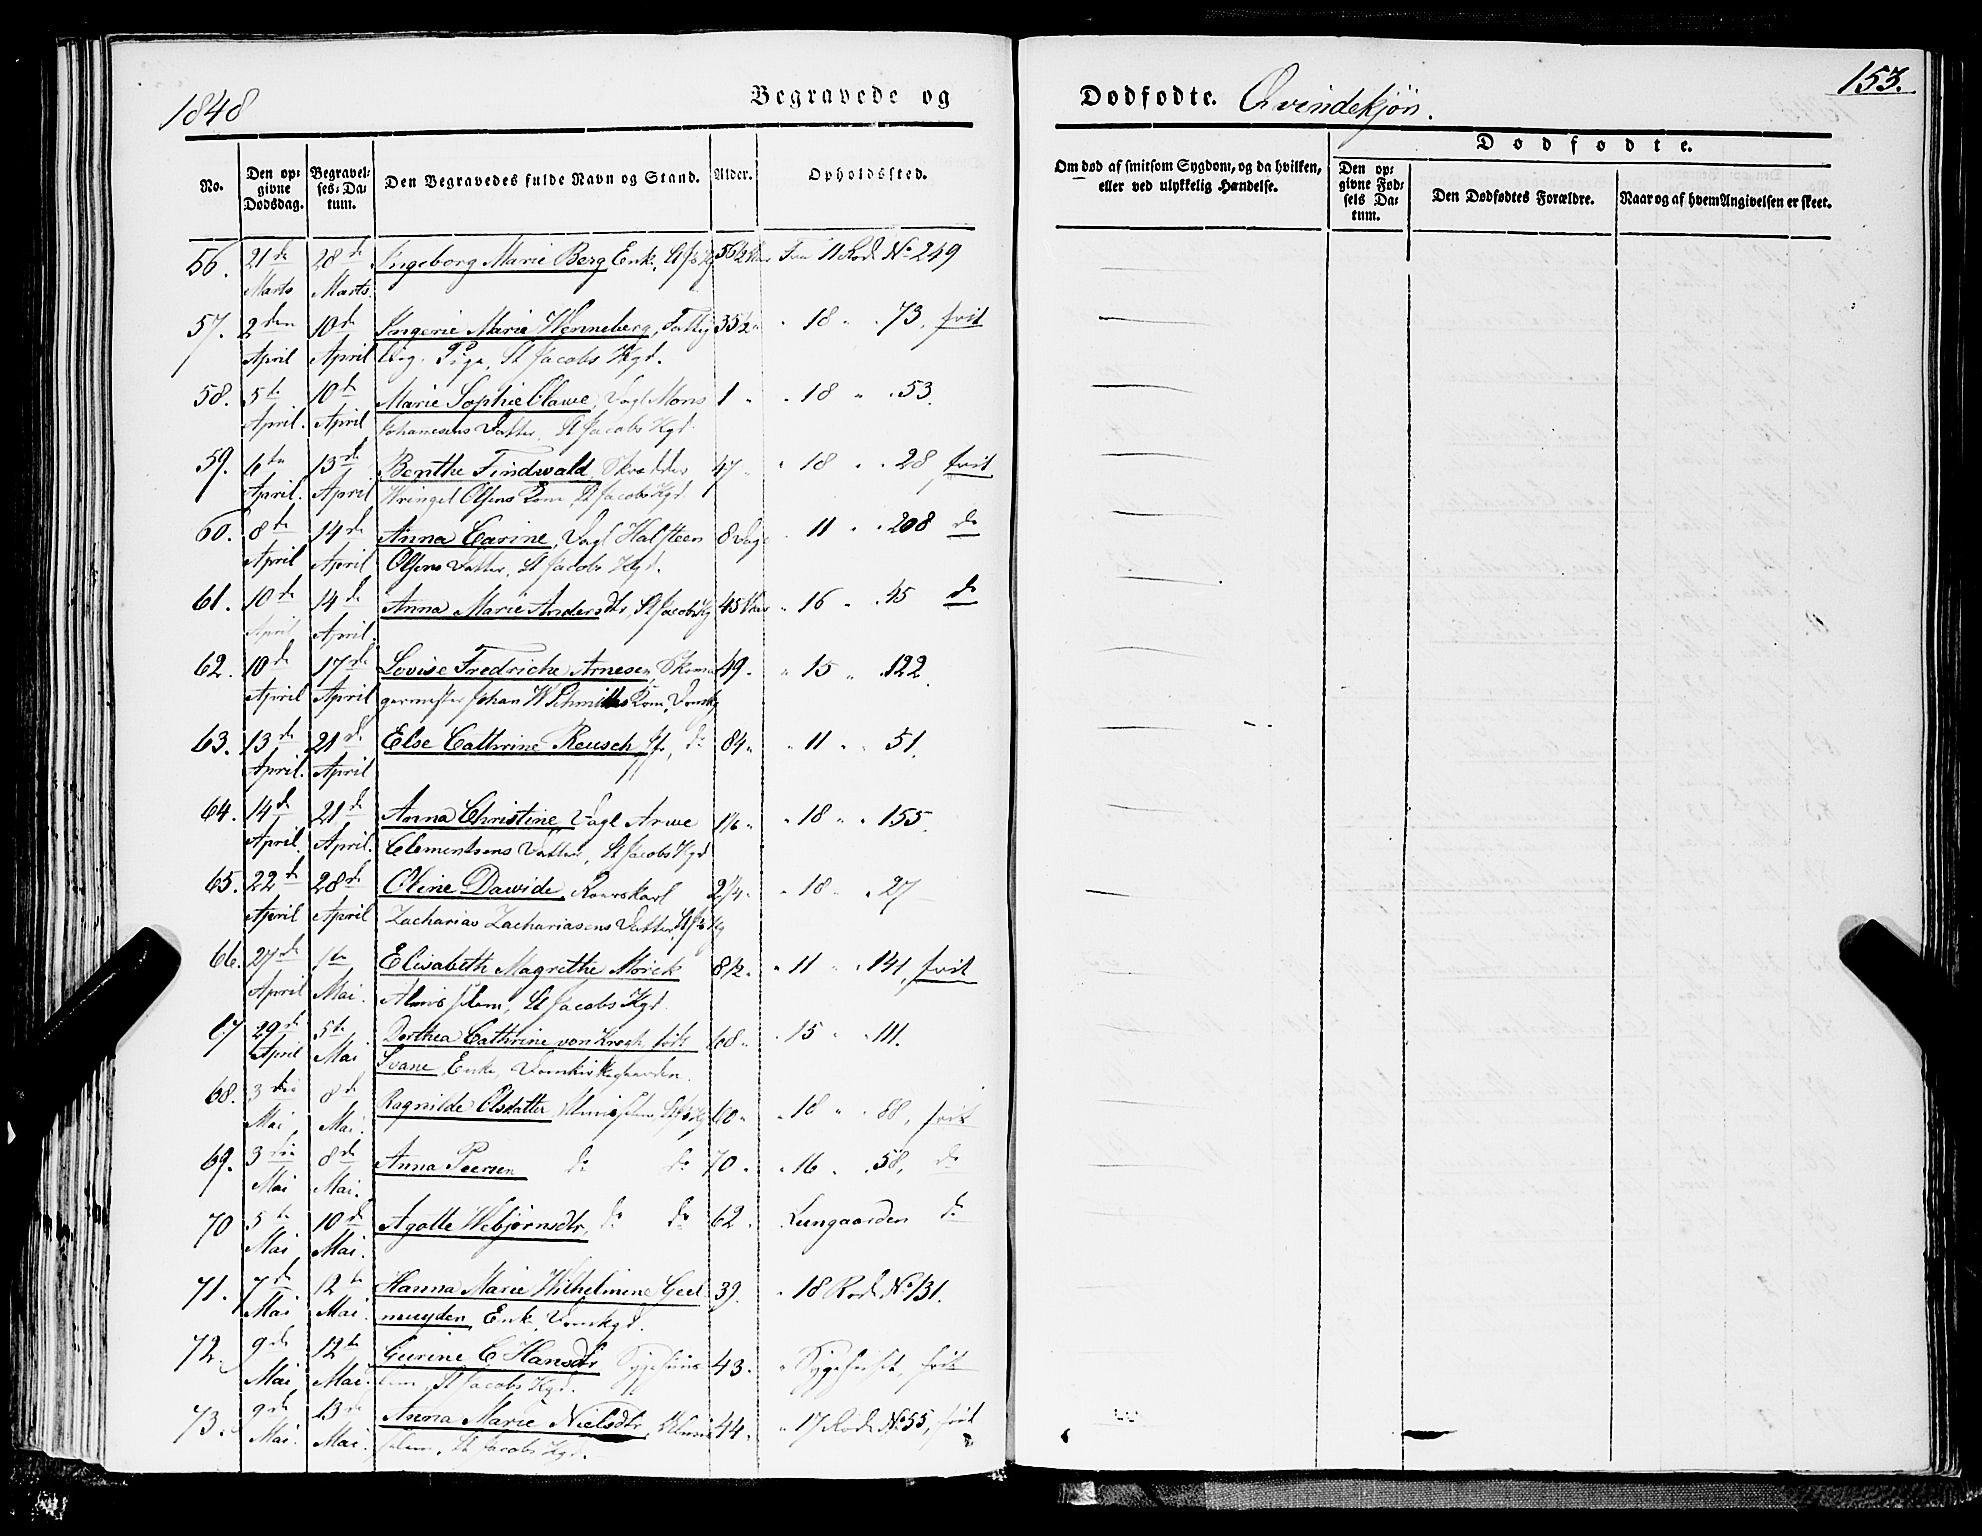 1848
Begravede og
Dødfødte. Qvindekjøn.
153.
No.
Den opgivne Dødsdag.
Begravelses-Datum.
Den Begravedes fulde Navn og Stand.
Alder.
Opholdssted.
Om død af smitsom Sygdom, og da hvilken, eller ved ulykkelig Hændelse.
Dødfødte.
Den opgivne Fødsels Datum.
Den Dødfødtes Forældre.
Naar og af hvem Angivelsen er skeet.
56. 21de 28de Ingeborg Marie Berg, Enke, 56½ 11 Rode No 249
Marts Marts
57. 2den 10de Ingerie Marie Wenneberg, 35½ " 18 " " 73, frit
April April Pige, St Jacobs Kgd.
58. 5te 10de Marie Sophie Clawe, Dagl Mons 1 " " 18 " " 53.
April. April Johannesens Datter, St Jacobs Kgd.
59. 6te 13de Benthe Tindwald, Skrædder 47 " " 18 " " 28 frit
April. April Olsens Kone, St Jacobs Kgd.
60. 8de 14de Anna Carine, Dagl Halsteen 8 Dage " 11 " " 208 do
April April Olsens Datter, St Jacobs Kgd.
61. 10de 14de Anna Marie Andersdtr, St Jacobs Kg 45 " 16 " " 45 do
April April.
62. 10de 17de Lovise Fredriche Arnesen, Skoma 49. " 15 " " 122.
April April germester Johan W Schmidts Kone,
63. 13de 21de Else Catthrine Reusch do 84 " " 11 " " 51.
April. April
64. 14de 21de Anna Christine Dagl Arwe 1⅙ " " 18 " " 155.
April. April. Clementsens Datter, St Jacobs Kgd
65. 22de 28de Oline Dawide, 2¼ " " 18 " " 27
April April Zacharias Zachariasens Datter,
66. 27de 1te Elisabeth Magrethe Morck 8½ " " 11 " " 141, frit
April Mai. Almislem, St Jacobs Kgd.
67 29de 5te Dorthea Cathrine von Krogh, født 68 " " 15 " " 111.
April Mai Svane, Enke, Domkirkegaarden.
68. 3die 8de Ragnilde Olsdatter, Almislem, 60 " " 18 " " 88, frit
Mai Mai.
69. 3die 8de Anna Peersen do do 70 " " 16 " " 58, do
Mai Mai.
70 5te 10de Agatte Webjørnsdtr, do do 62 " Lungaarden do
Mai Mai.
71. 7de 12te Hanna Marie Wilhelmine Geel 39. " 18 Rode No 131.
Mai Mai. muyden, Enke, Domkgd.
72. 9de 12te Gurine C Hansdtr Sygehuus 43. " Sygehuset, frit
Mai Mai. lem, St Jacobs Kgd.
73. 9de 13de Anna Marie Nielsdtr, Almis 44 " " 17 Rode No 55, frit
Mai. Mai. slem, St Jacobs Kgd.